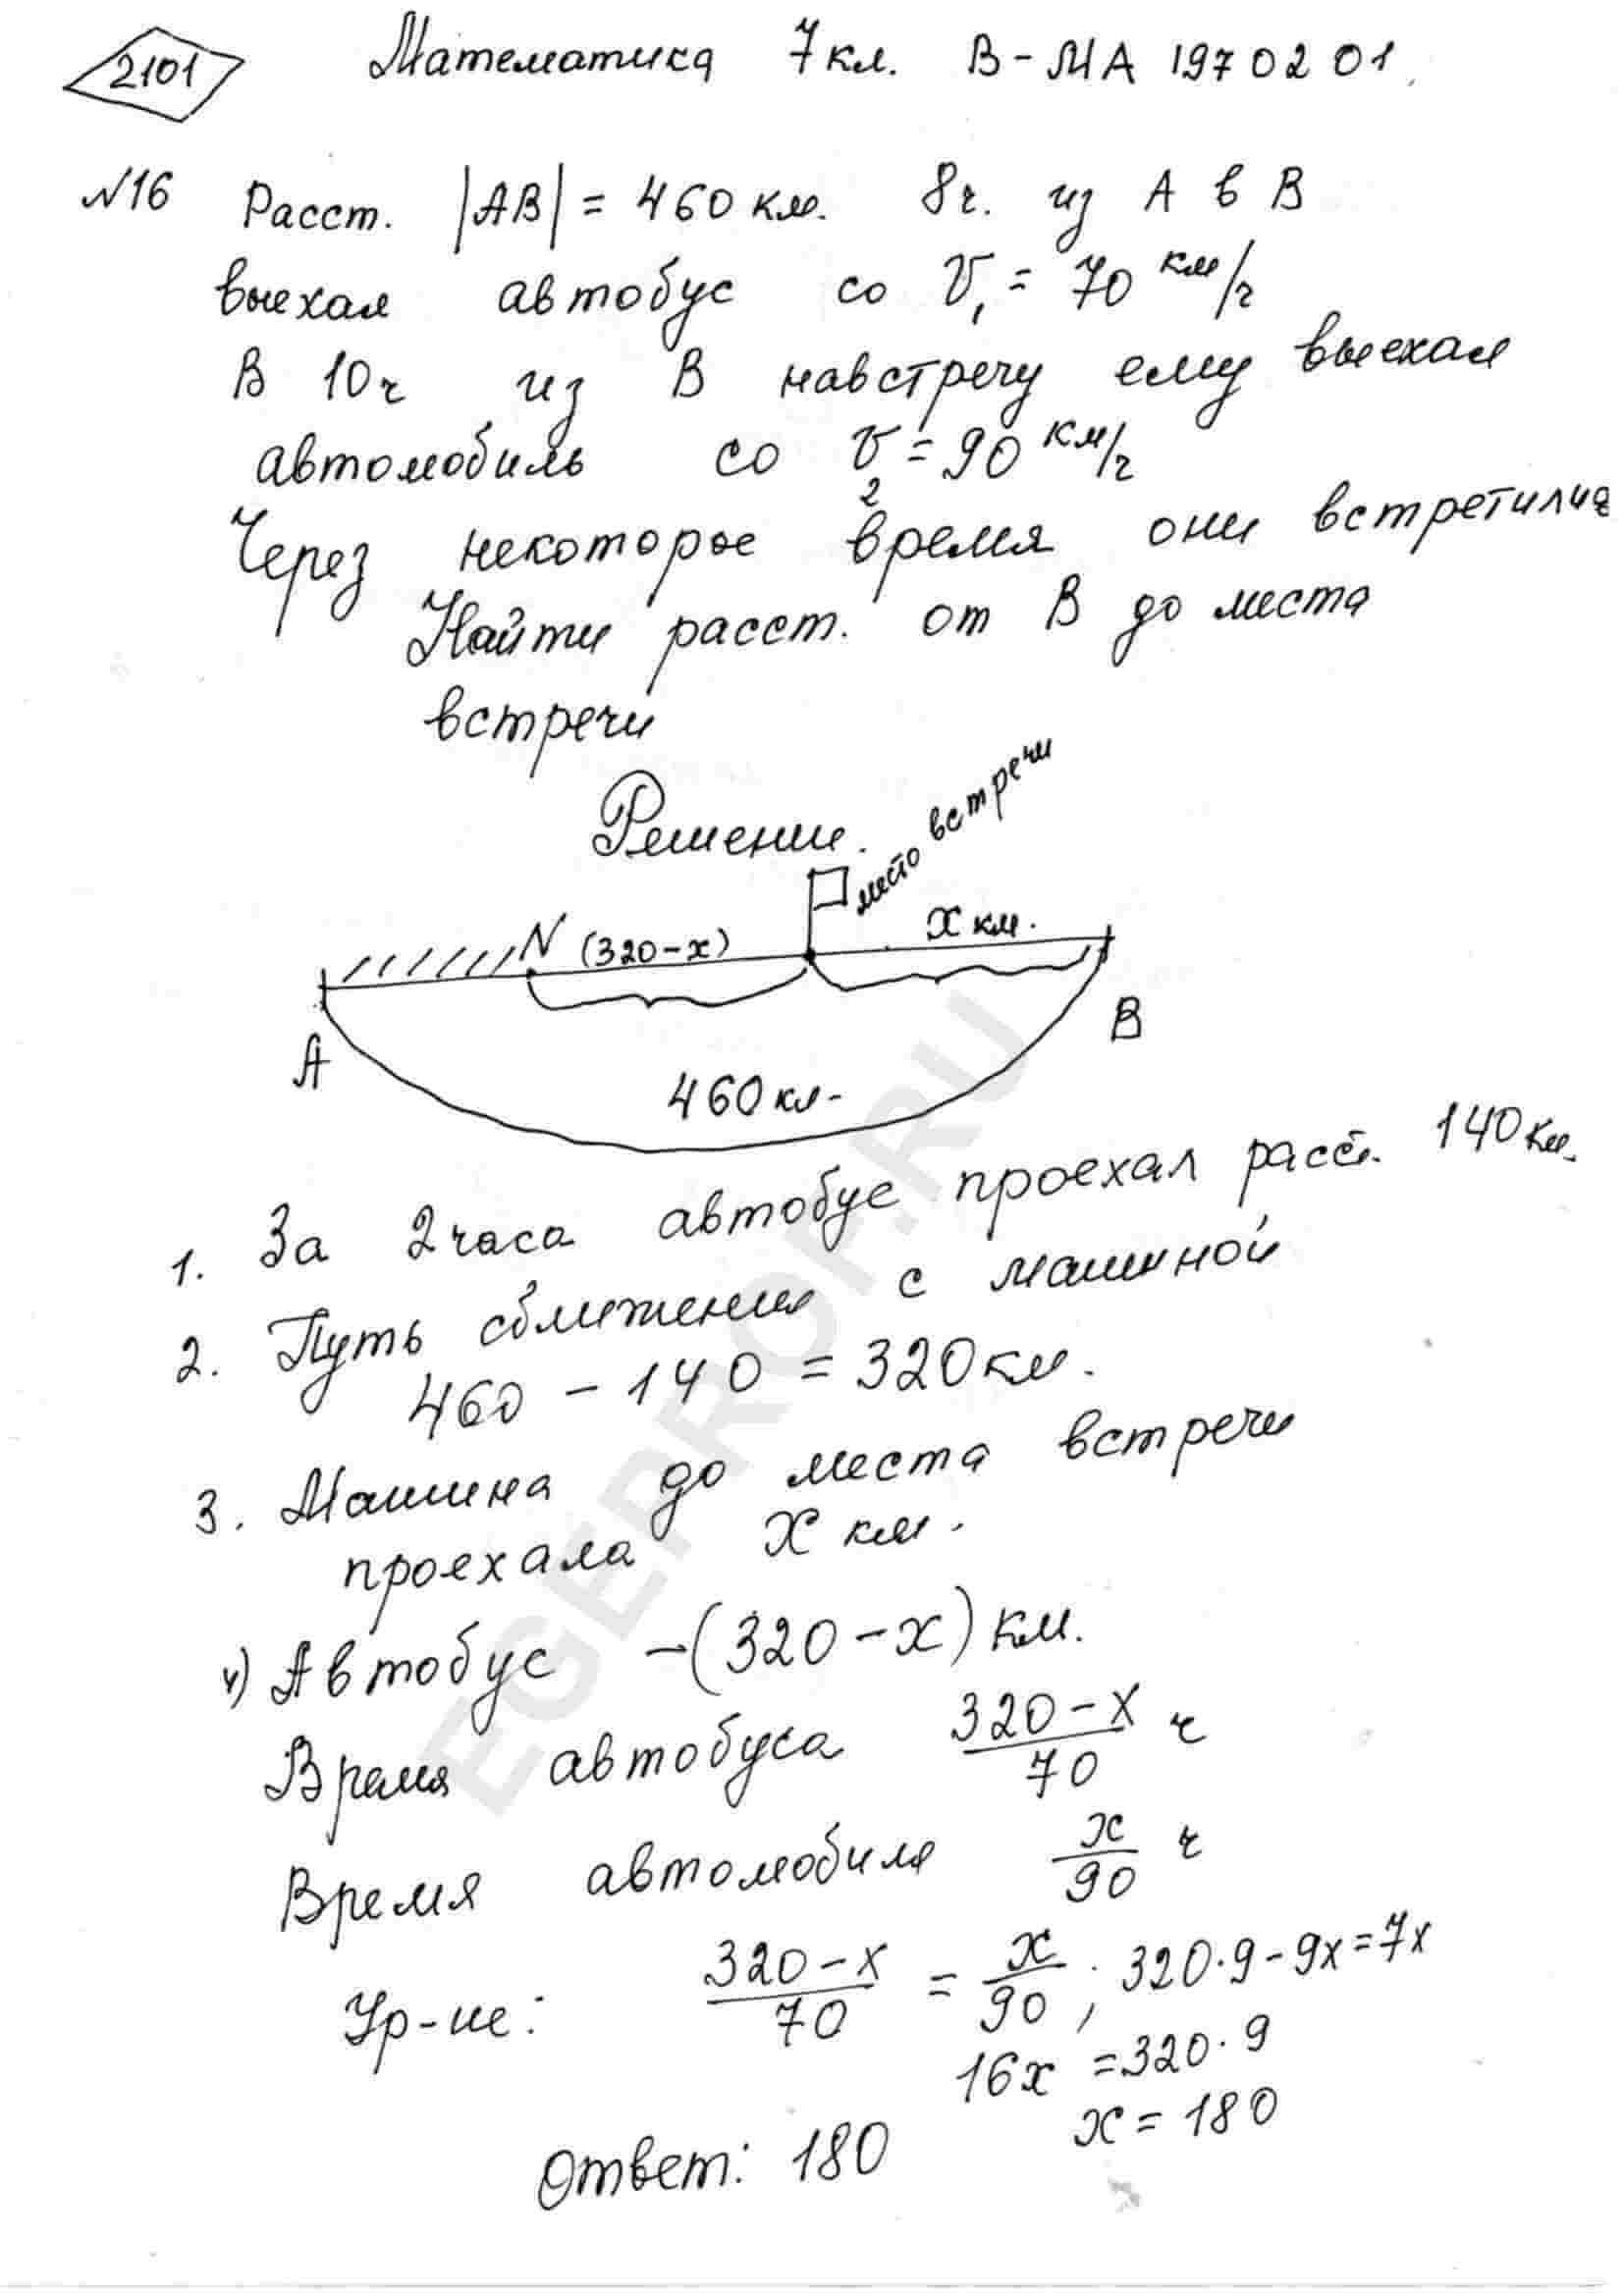 2101
Математика 7кл. В-МА 1970201.
№16 Расст. |АВ| = 460 км. 8ч. из А в В
выехал автобус со V₁ = 70 км/ч
В 10ч из В навстречу ему выехал
автомобиль со V₂ = 90 км/ч
Через некоторое время они встретились
Найти расст. от В до места
встречи
Решение.
место встречи
N (320-x) X км.
А В
460 км.
1. За 2 часа автобус проехал расст. 140 км.
2. Путь сближения с машиной
460 - 140 = 320 км.
3. Машина до места встречи
проехала X км.
4) Автобус -(320-x) км.
Время автобуса (320-x)/70 ч
Время автомобиля x/90 ч
Ур-ие: (320-x)/70 = x/90; 320·9-9x=7x
16x = 320·9
x = 180
Ответ: 180
EGEPROF.RU